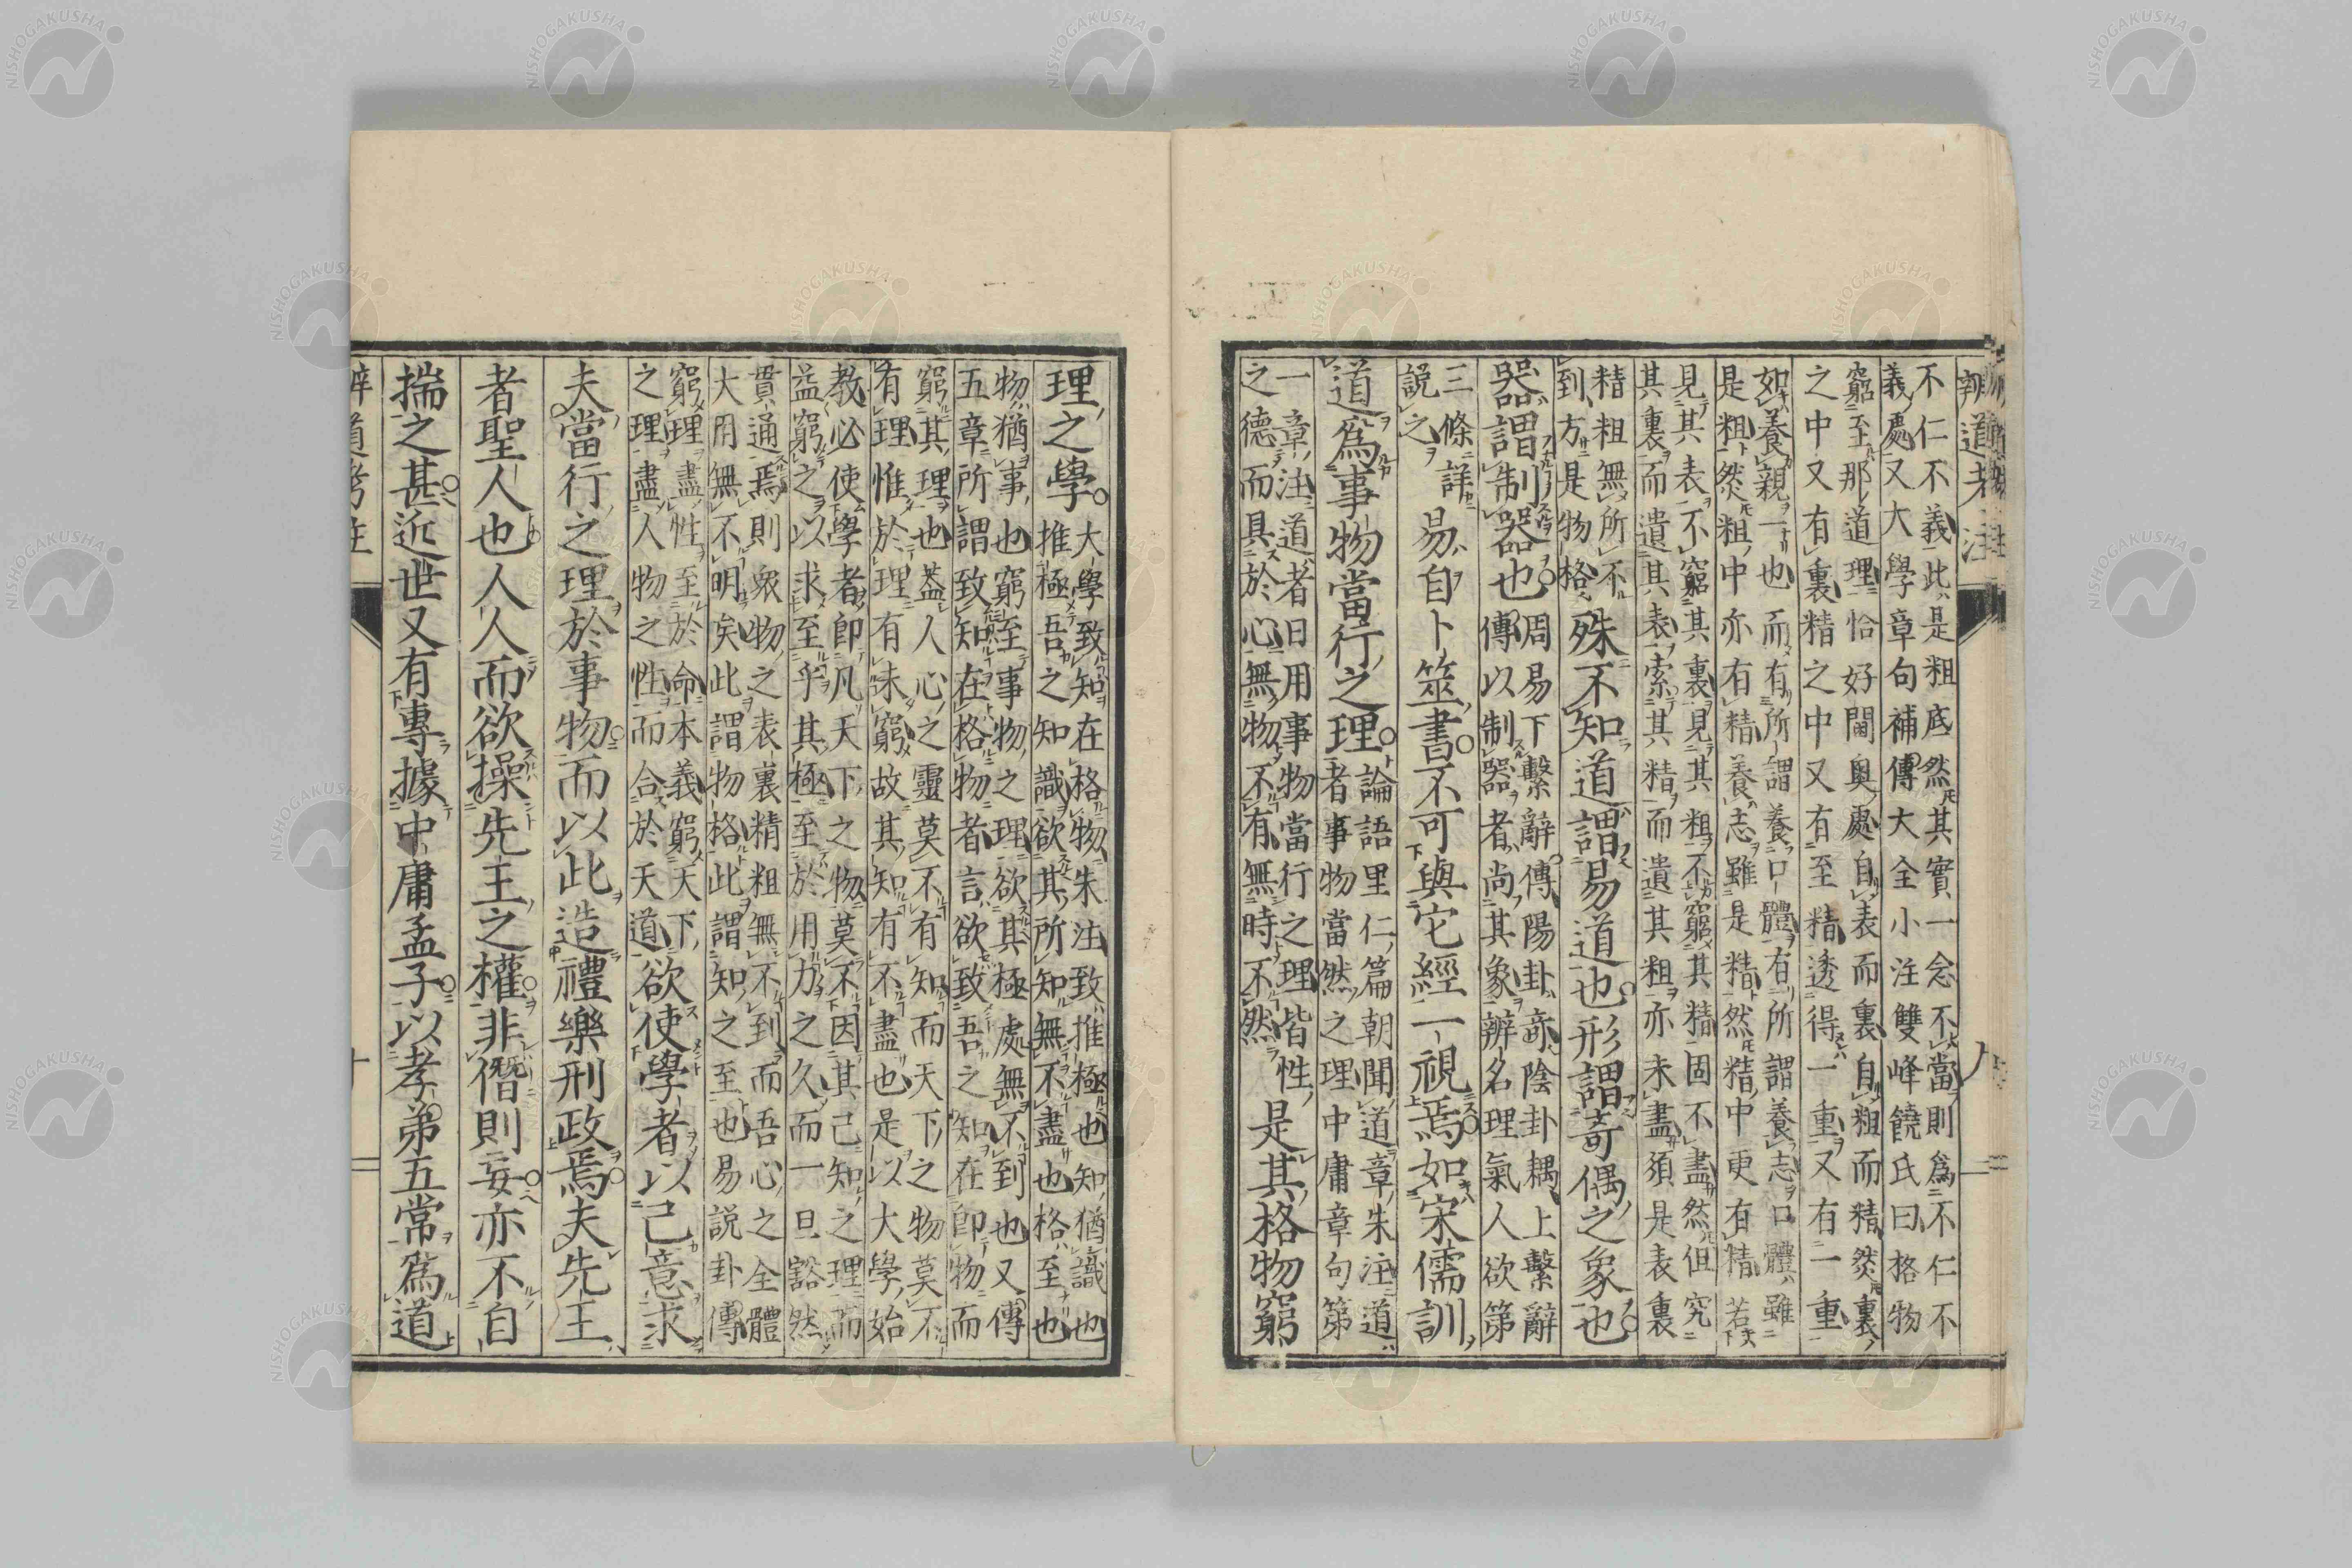 辨道考注 八
不仁不義此是粗底然其實一念不當則爲不仁不
義處又大學章句補傳大全小注雙峰饒氏曰格物
窮至那道理恰好閫奥處自表而裏自粗而精然裏
之中又有裏精之中又有至精透得一重又有一重
如養親一也而有所謂養口體有所謂養志口體雖
是粗然粗中亦有精養志雖是精然精中更有精若
見其表不窮其裏見其粗不窮其精固不盡然但究
其裏而遺其表索其精而遺其粗亦未盡須是表裏
精粗無所不
到方是物格
殊不知道謂易道也形謂奇偶之象也
器謂制器也
周易下繫辭傳陽卦竒陰卦耦上繫辭
傳以制器者尚其象辨名理氣人欲第
三條詳
説之
易自卜筮書不可與它經一視焉如宋儒訓
道爲事物當行之理
論語里仁篇朝聞道章朱注道
者事物當然之理中庸章句第
一章注道者日用事物當行之理皆性
之德而具於心無物不有無時不然
是其格物窮
理之學
大學致知在格物朱注致推極也知猶識也
推極吾之知識欲其所知無不盡也格至也
物猶事也窮至事物之理欲其極處無不到也又傳
五章所謂致知在格物者言欲致吾之知在即物而
窮其理也蓋人心之靈莫不有知而天下之物莫不
有理惟於理有未窮故其知有不盡也是以大學始
教必使學者即凡天下之物莫不因其已知之理而
益窮之以求至乎其極至於用力之久而一旦豁然
貫通焉則衆物之表裏精粗無不到而吾心之全體
大用無不明矣此謂物格此謂知之至也易説卦傳
窮理盡性至於命本義窮天下
之理盡人物之性而合於天道
欲使學者以己意求
夫當行之理於事物而以此造禮樂刑政焉夫先王
者聖人也人人而欲操先王之權非僭則妄亦不自
揣之甚近世又有專據中庸孟子以孝弟五常爲道
辨道考注
NISHOGAKUSHA